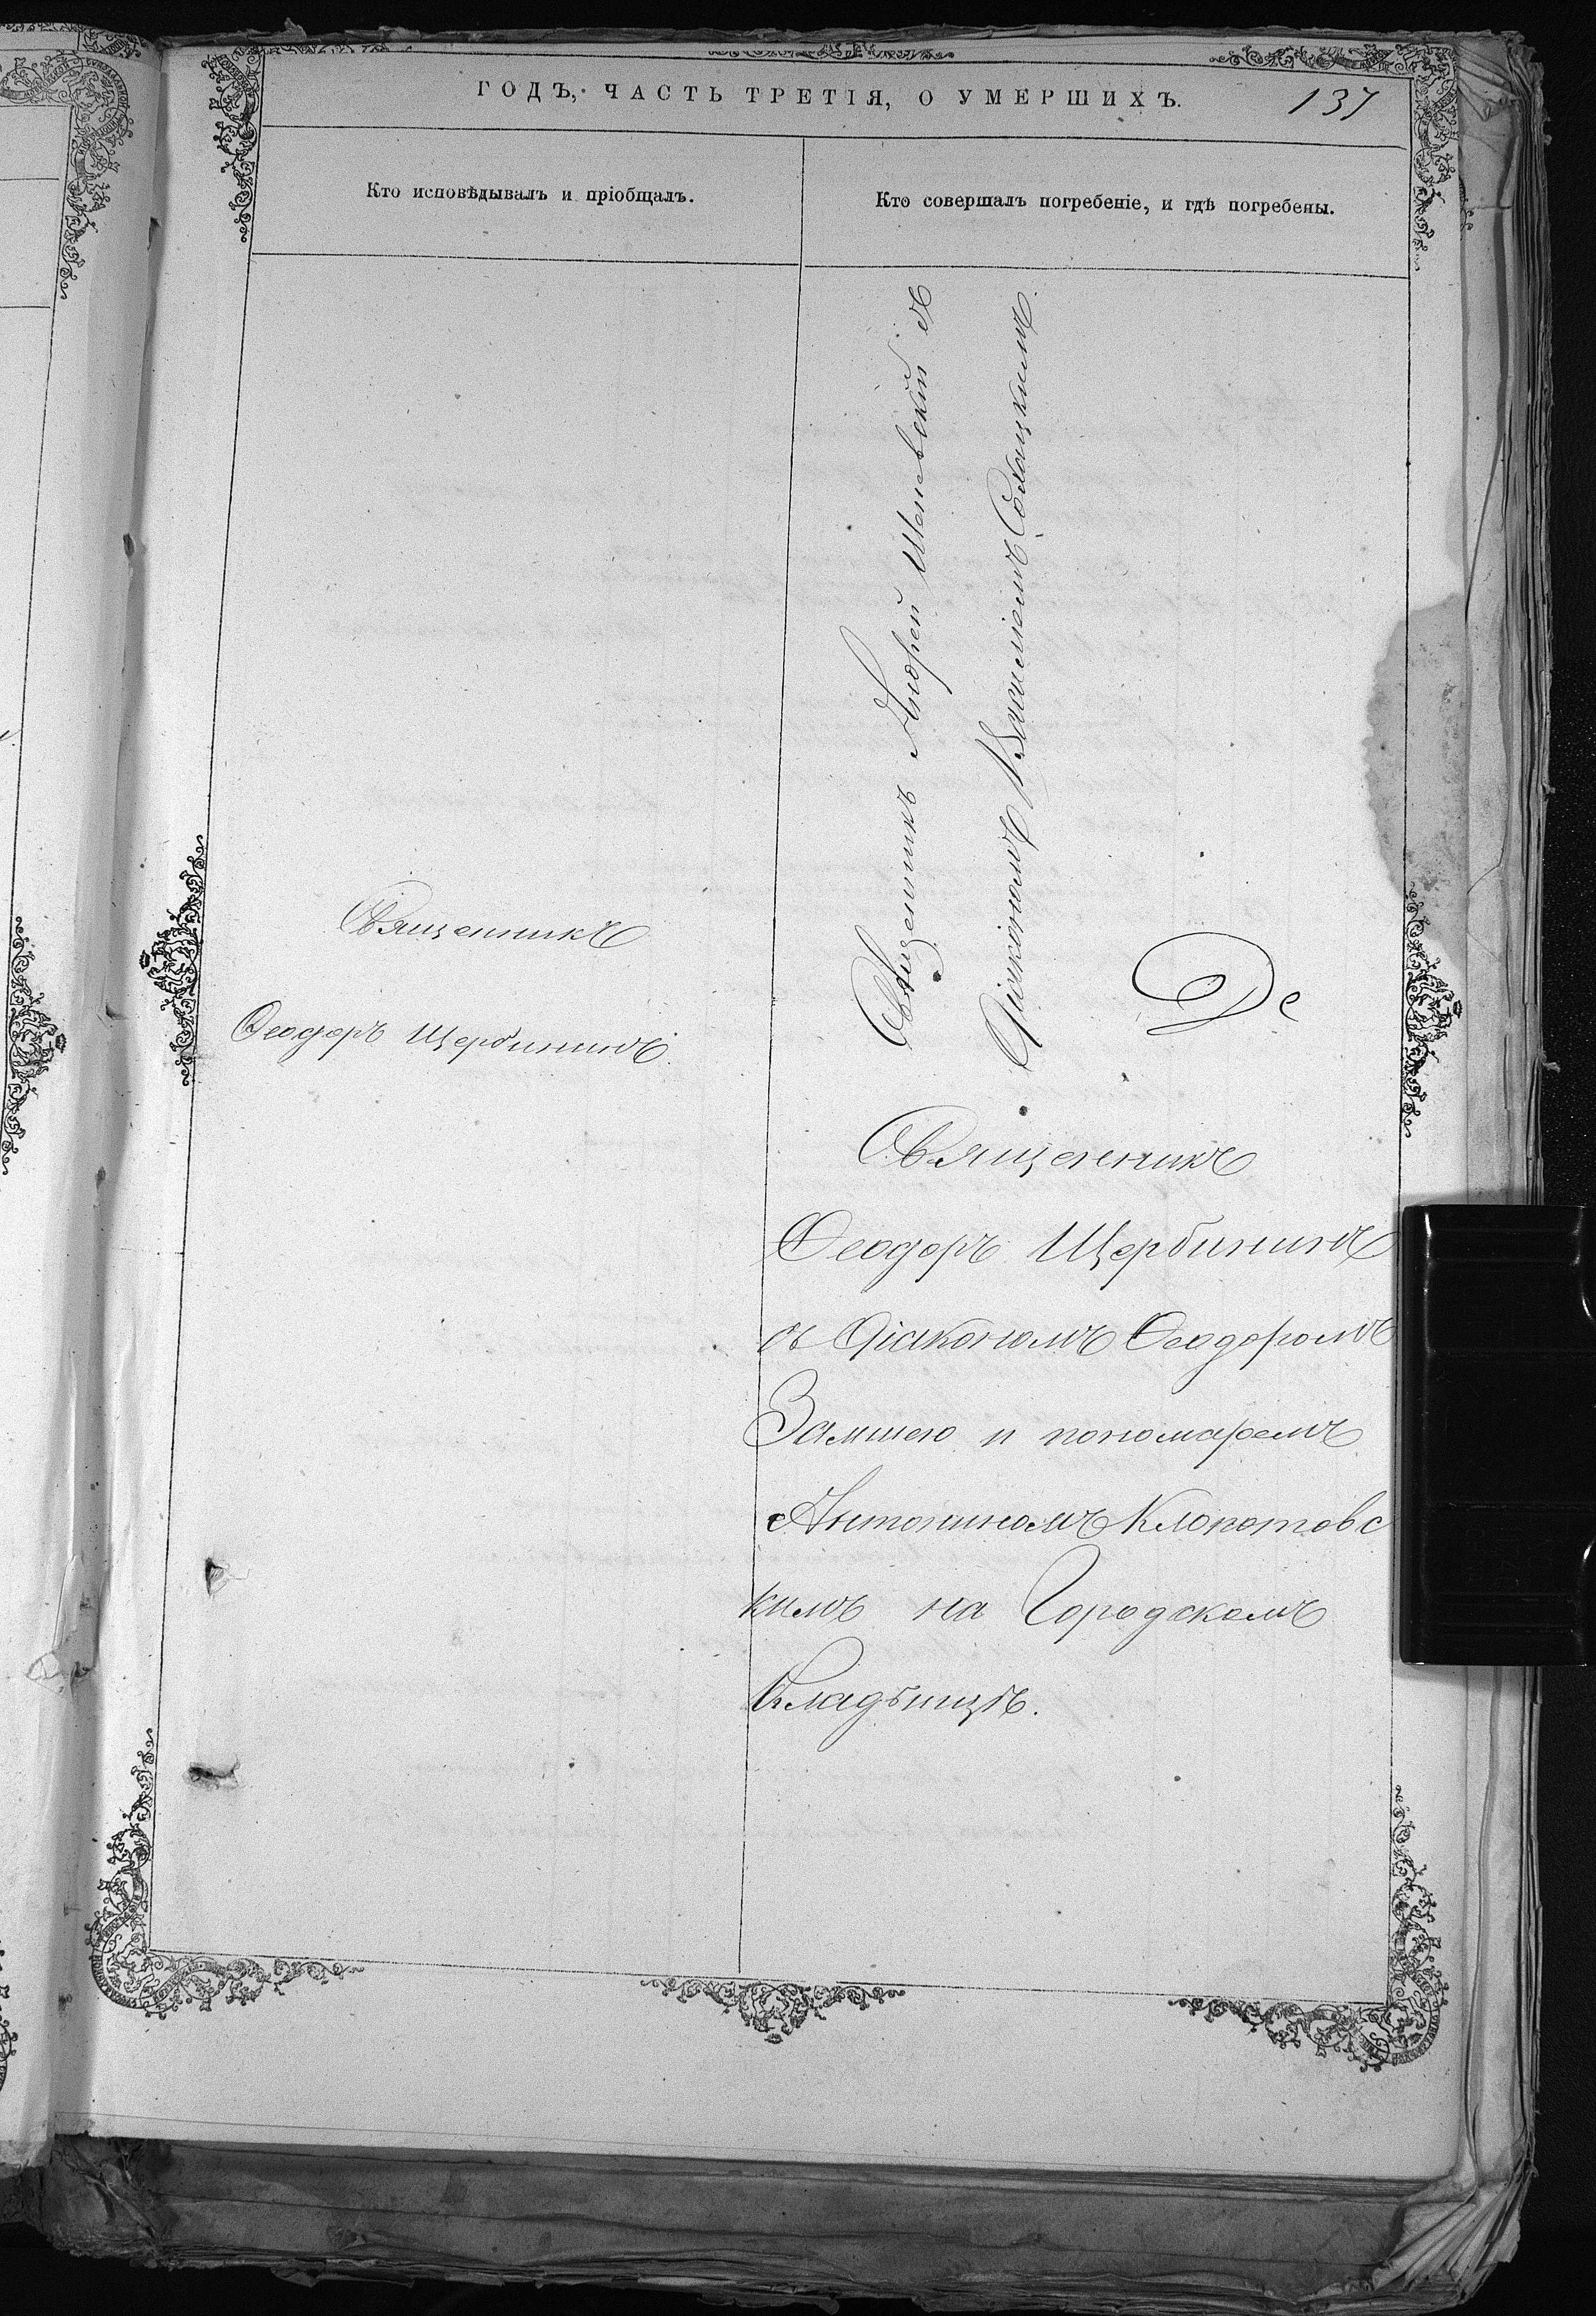 ГОДЪ, ЧАСТЬ ТРЕТІЯ, О УМЕРШИХЪ.
137
Кто исповѣдывалъ и пріобщалъ.
Кто совершалъ погребеніе, и гдѣ погребены.
Священникъ
Ѳеодоръ Щербининъ.
Священникъ Андрей Шеневскій съ
Діакономъ Василіемъ
Священникъ
Ѳеодоръ Щербининъ
съ Діакономъ Ѳеодоромъ
Замшею и пономаремъ
Антониномъ Клопотовс
кимъ на Городскомъ
Кладбищѣ.